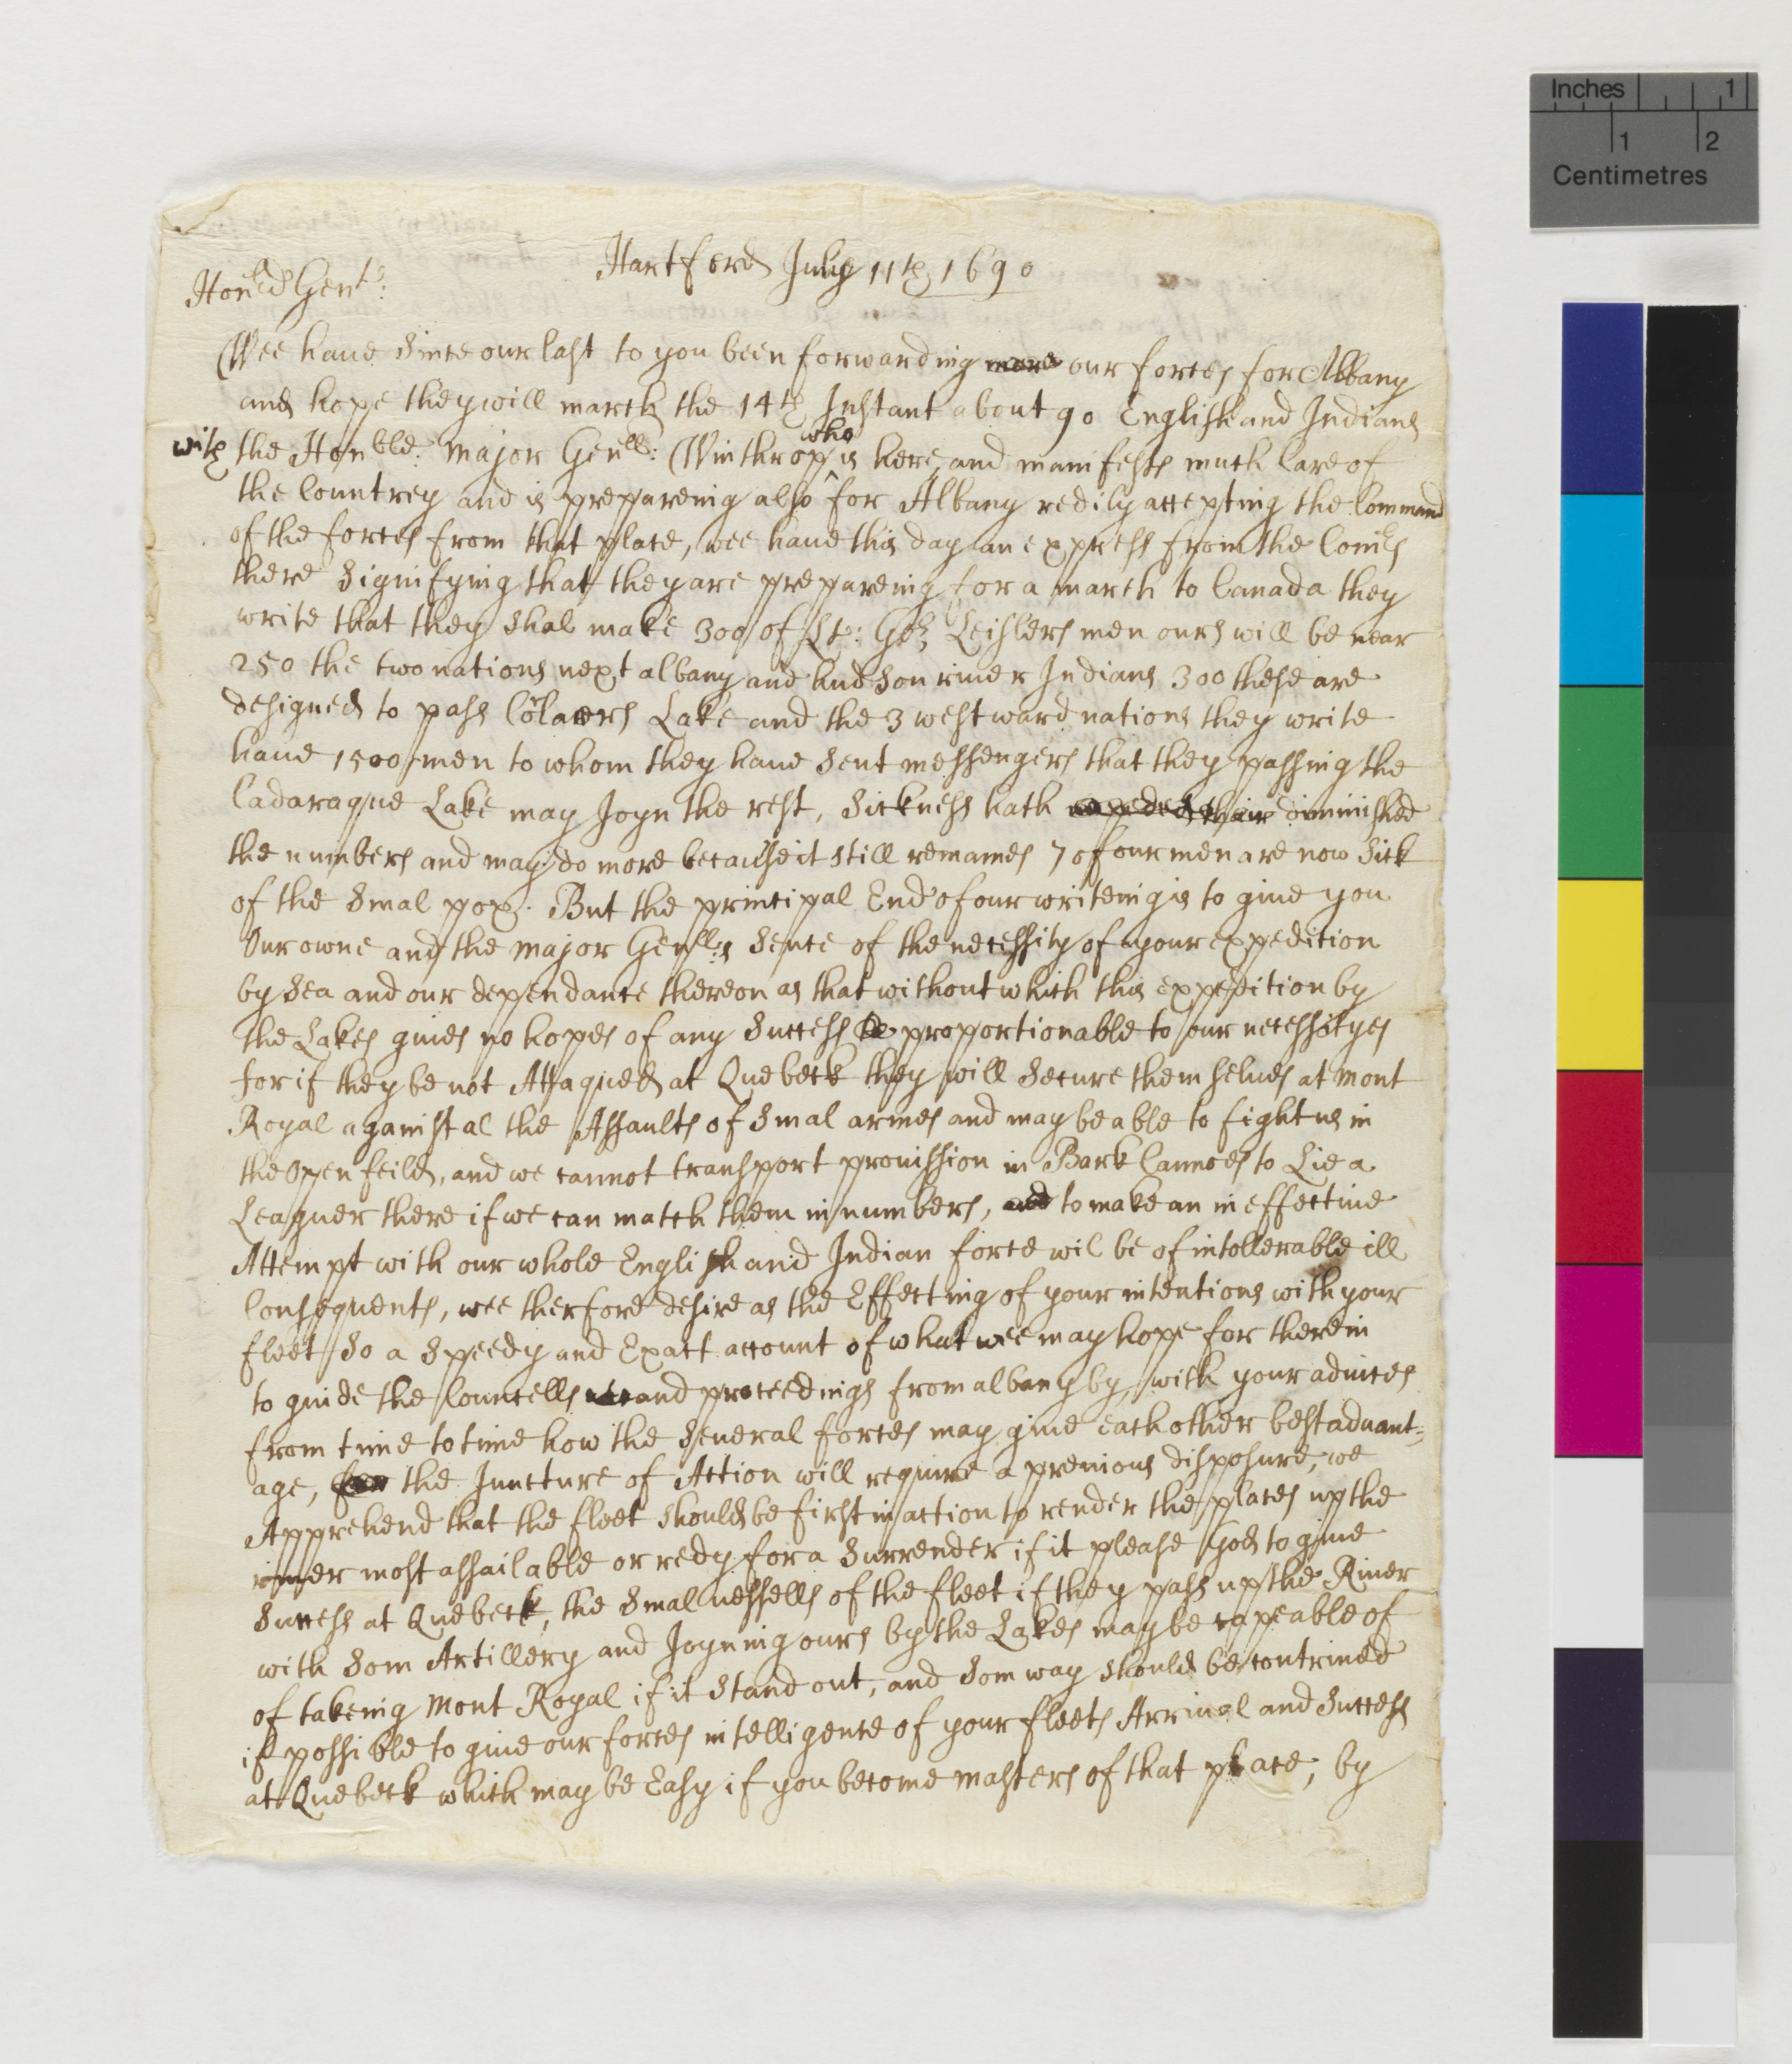 Hartford July 11th 1690
Honred Gent:
Wee haue Since our last to you been forwarding more our forces for Albany
and hope they will march the 14th Instant about 90 English and Indians
with the Honble: Major Genll: Winthrop who is here and manifests much Care of
the Countrey and is prepareing also for Albany redily accepting the Command
of the forces from that place, wee haue this day an express from the Comrs
there Signifying that they are prepareing for a march to Canada they
write that they Shal make 300 of Lt: Gor Leislers men ours will be near
250 the two nations next albany and hudson riuer Indians 300 these are
designed to pass Corlaers Lake and the 3 westward nations they write
haue 1500 men to whom they haue Sent messengers that they passing the
Cadaraque Lake may Joyn the rest, Sickness hath diminished
the numbers and may do more because it still remaines 7 of our men are now Sick
of the Smal pox. But the principal End of our writeing is to giue you
Our owne and the Major Genlls Sence of the necessity of your expedition
by Sea and our dependance thereon as that without which this expedition by
the Lakes giues no hopes of any Success proportionable to our necessityes
for if they be not Attaqued at Quebeck they will Secure themselues at Mont
Royal against al the Assaults of Smal armes and may be able to fight us in
the Open feild, and we cannot transport prouission in Bark Cannoes to Lie a
Leaguer there if we can match them in numbers, and to make an in effectiue
Attempt with our whole English and Indian force wil be of intollerable ill
Consequents, wee therfore desire as the Effecting of your intentions with your
fleet So a Speedy and Exact account of what wee may hope for therein
to guide the Councells and proceedings from albany by, with your aduices
from time to time how the Seueral forces may giue each other best aduant=
age, for the Juncture of Action will require a preuious disposure, we
Apprehend that the fleet should be first in action to render the places up the
riuer most assailable or redy for a Surrender if it please God to giue
Success at Quebeck, the Smal uessells of the fleet if they pass up the Riuer
with Som Artillery and Joyning ours by the Lakes may be capeable of
of takeing Mont Royal if it Stand out, and Som way should be contriued
if possible to giue our forces intelligence of your fleets Arriual and Success
at Quebeck which may be Easy if you become masters of that place, by